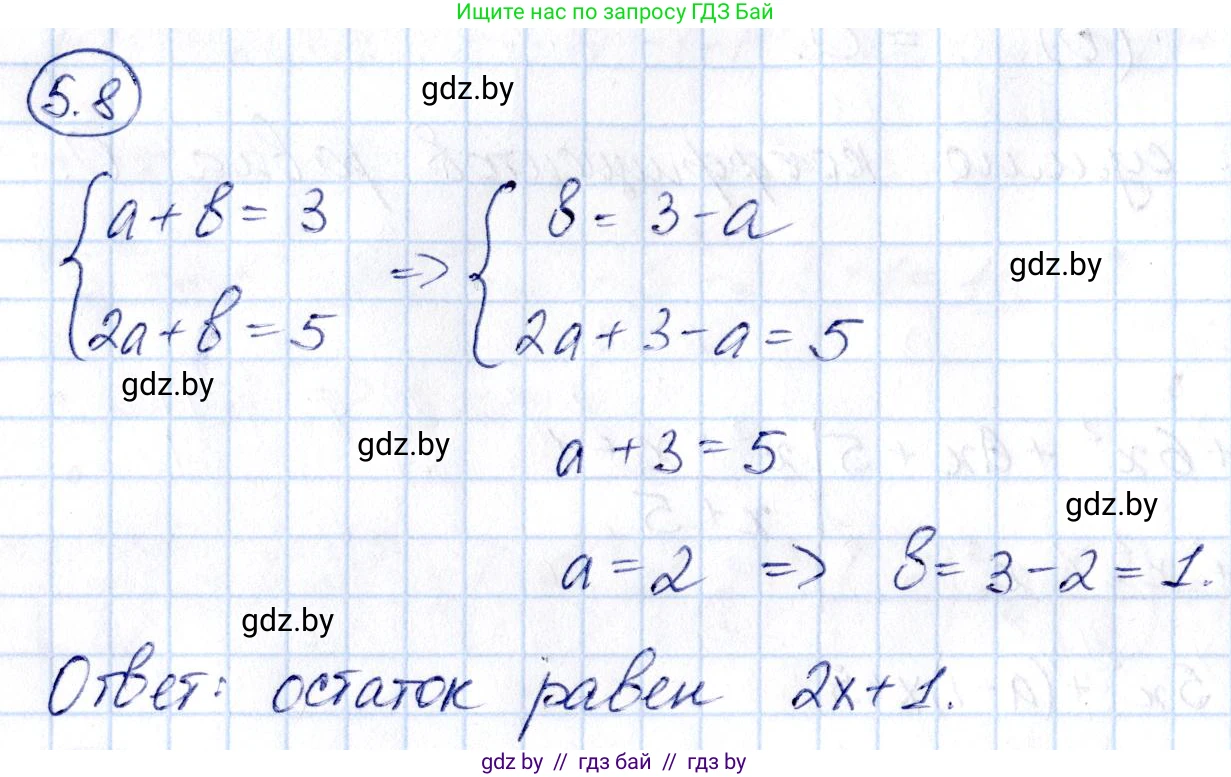 Ищите нас по запросу ГДЗ Бай
5.8
gdz.by
{ a + b = 3
2a + b = 5
=>
{ b = 3 - a
2a + 3 - a = 5
gdz.by
gdz.by
gdz.by
a + 3 = 5
gdz.by
a = 2 => b = 3 - 2 = 1.
gdz.by
Ответ: остаток равен 2x + 1.
gdz by // гдз бай // гдз by